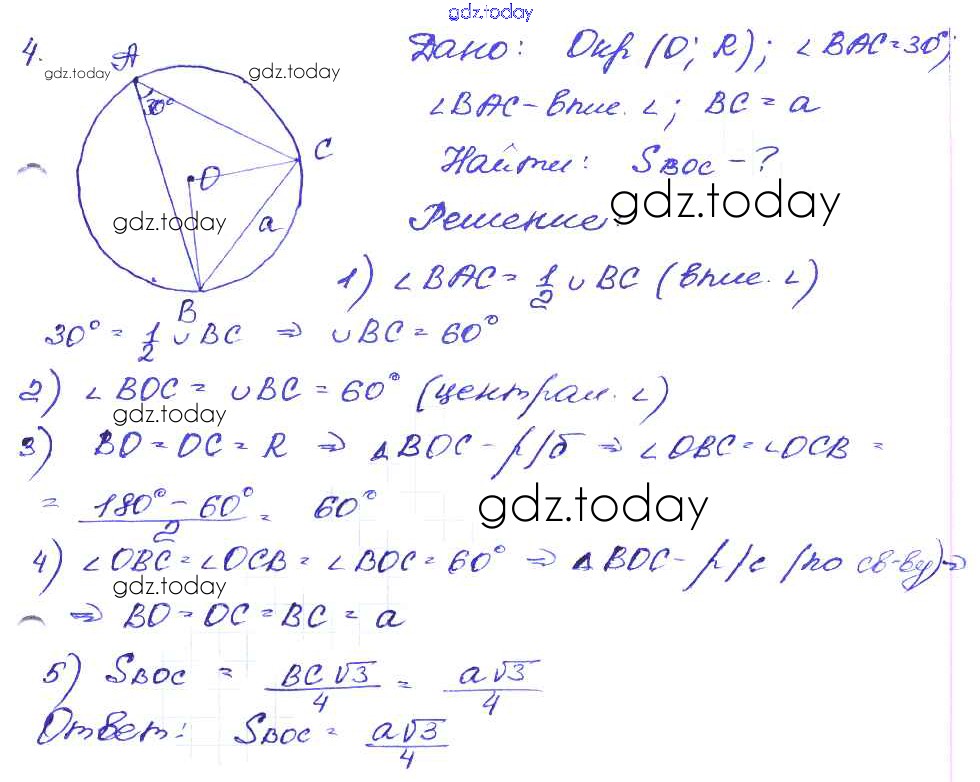 gdz.today
4.
A
gdz.today
gdz.today
30°
C
O
gdz.today
a
B
Дано: Окр (O; R); ∠BAC = 30°;
∠BAC - впис. ∠; BC = a
Найти: S_BOC - ?
gdz.today
Решение:
1) ∠BAC = 1/2 ∪ BC (впис. ∠)
30° = 1/2 ∪ BC ⇒ ∪BC = 60°
2) ∠BOC = ∪BC = 60° (централ. ∠)
gdz.today
3) BO = OC = R ⇒ △BOC - р/б ⇒ ∠OBC = ∠OCB =
= (180° - 60°)/2 = 60°
gdz.today
4) ∠OBC = ∠OCB = ∠BOC = 60° ⇒ △BOC - р/с (по св-ву) ⇒
gdz.today
⇒ BO = OC = BC = a
5) S_BOC = BC√3/4 = a√3/4
Ответ: S_BOC = a√3/4